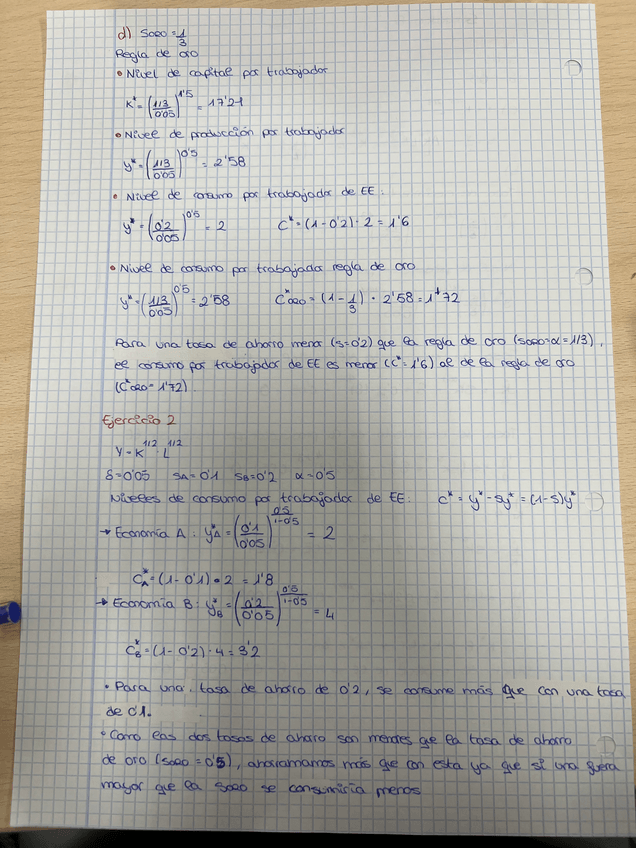 d) Soro = 1/3
Regla de oro
• Nivel de capital por trabajador
K* = ((1/3)/0'05)^1'5 = 17'21
• Nivel de producción por trabajador
y* = ((1/3)/0'05)^0'5 = 2'58
• Nivel de consumo por trabajador de EE:
y* = (0'2/0'05)^0'5 = 2 C* = (1-0'2)·2 = 1'6
• Nivel de consumo por trabajador regla de oro
y* = ((1/3)/0'05)^0'5 = 2'58 C*oro = (1 - 1/3) · 2'58 = 1'72
Para una tasa de ahorro menor (s=0'2) que la regla de oro (soro=α=1/3),
el consumo por trabajador de EE es menor (C*=1'6) al de la regla de oro
(C*oro=1'72)
Ejercicio 2
Y = K^1/2 · L^1/2
δ=0'05 SA=0'1 SB=0'2 α=0'5
Niveles de consumo por trabajador de EE: c* = y* - sy* = (1-s)y*
→ Economía A: y*A = (0'1/0'05)^(0'5/1-0'5) = 2
C*A = (1-0'1)·2 = 1'8
→ Economía B: y*B = (0'2/0'05)^(0'5/1-0'5) = 4
C*B = (1-0'2)·4 = 3'2
• Para una tasa de ahorro de 0'2, se consume más que con una tasa
de 0'1.
• Como las dos tasas de ahorro son menores que la tasa de ahorro
de oro (soro=0'5), ahorramos más que con esta ya que si una fuera
mayor que la soro se consumiría menos